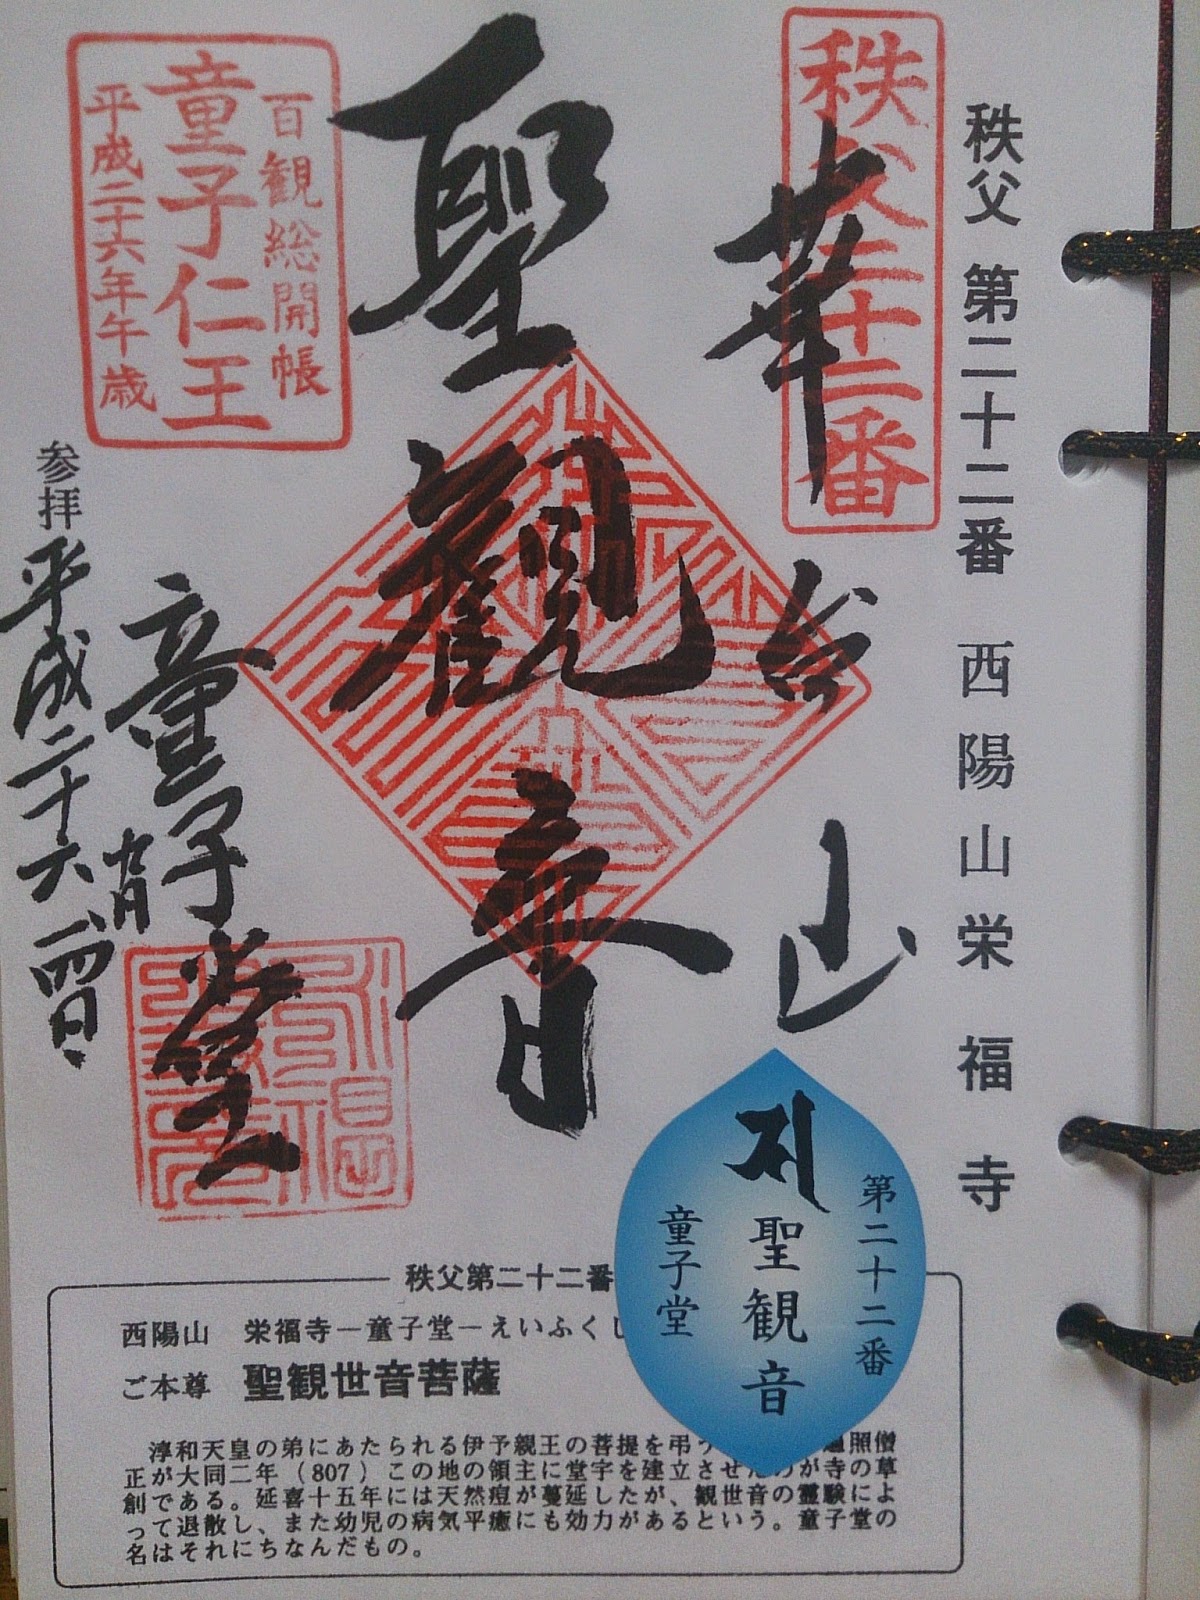 秩父 第二十二番 西陽山栄福寺
秩父二十二番
華台山
聖觀音
百観総開帳
童子仁王
平成二十六年午歳
童子堂
参拝 平成二十六
日
第二十二番
聖観音
童子堂
秩父第二十二番
西陽山 栄福寺－童子堂－えいふくじ
ご本尊 聖観世音菩薩
淳和天皇の弟にあたられる伊予親王の菩提を弔う 遍照僧
正が大同二年（807）この地の領主に堂宇を建立させたのが寺の草
創である。延喜十五年には天然痘が蔓延したが、観世音の霊験によ
って退散し、また幼児の病気平癒にも効力があるという。童子堂の
名はそれにちなんだもの。